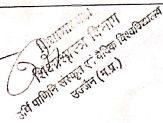 विभागाध्यक्ष
शिक्षाशास्त्र विभाग
महर्षि पाणिनि संस्कृत एवं वैदिक विश्वविद्यालय
उज्जैन (म.प्र.)